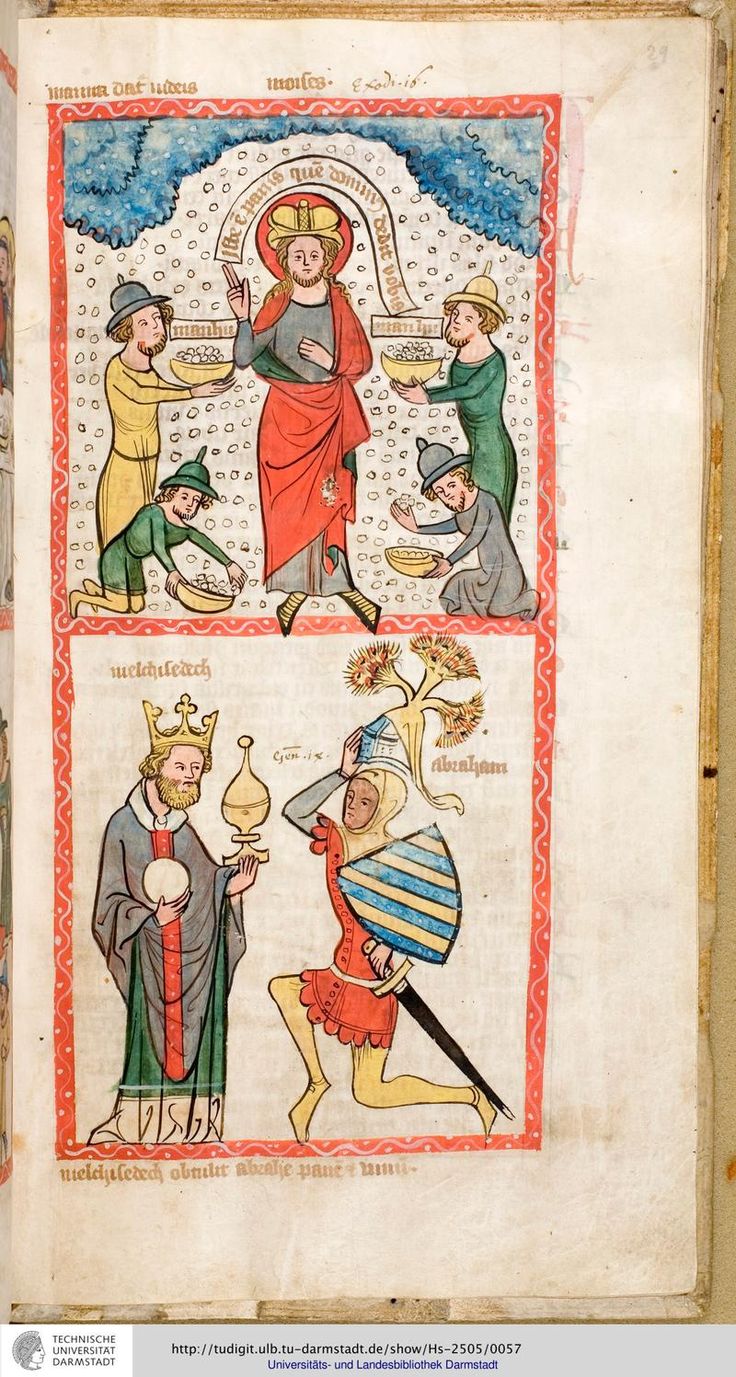 29
manna dat͛ iudeis moises. Exodi. 16.
Iste ē panis quē domin᷒ dedit vobis
manhu manhu
melchisedech
Gen̄. ix.
abraham
melchisedech obtulit abrahe pane ⁊ vinū.
TECHNISCHE
UNIVERSITÄT
DARMSTADT
http://tudigit.ulb.tu-darmstadt.de/show/Hs-2505/0057
Universitäts- und Landesbibliothek Darmstadt